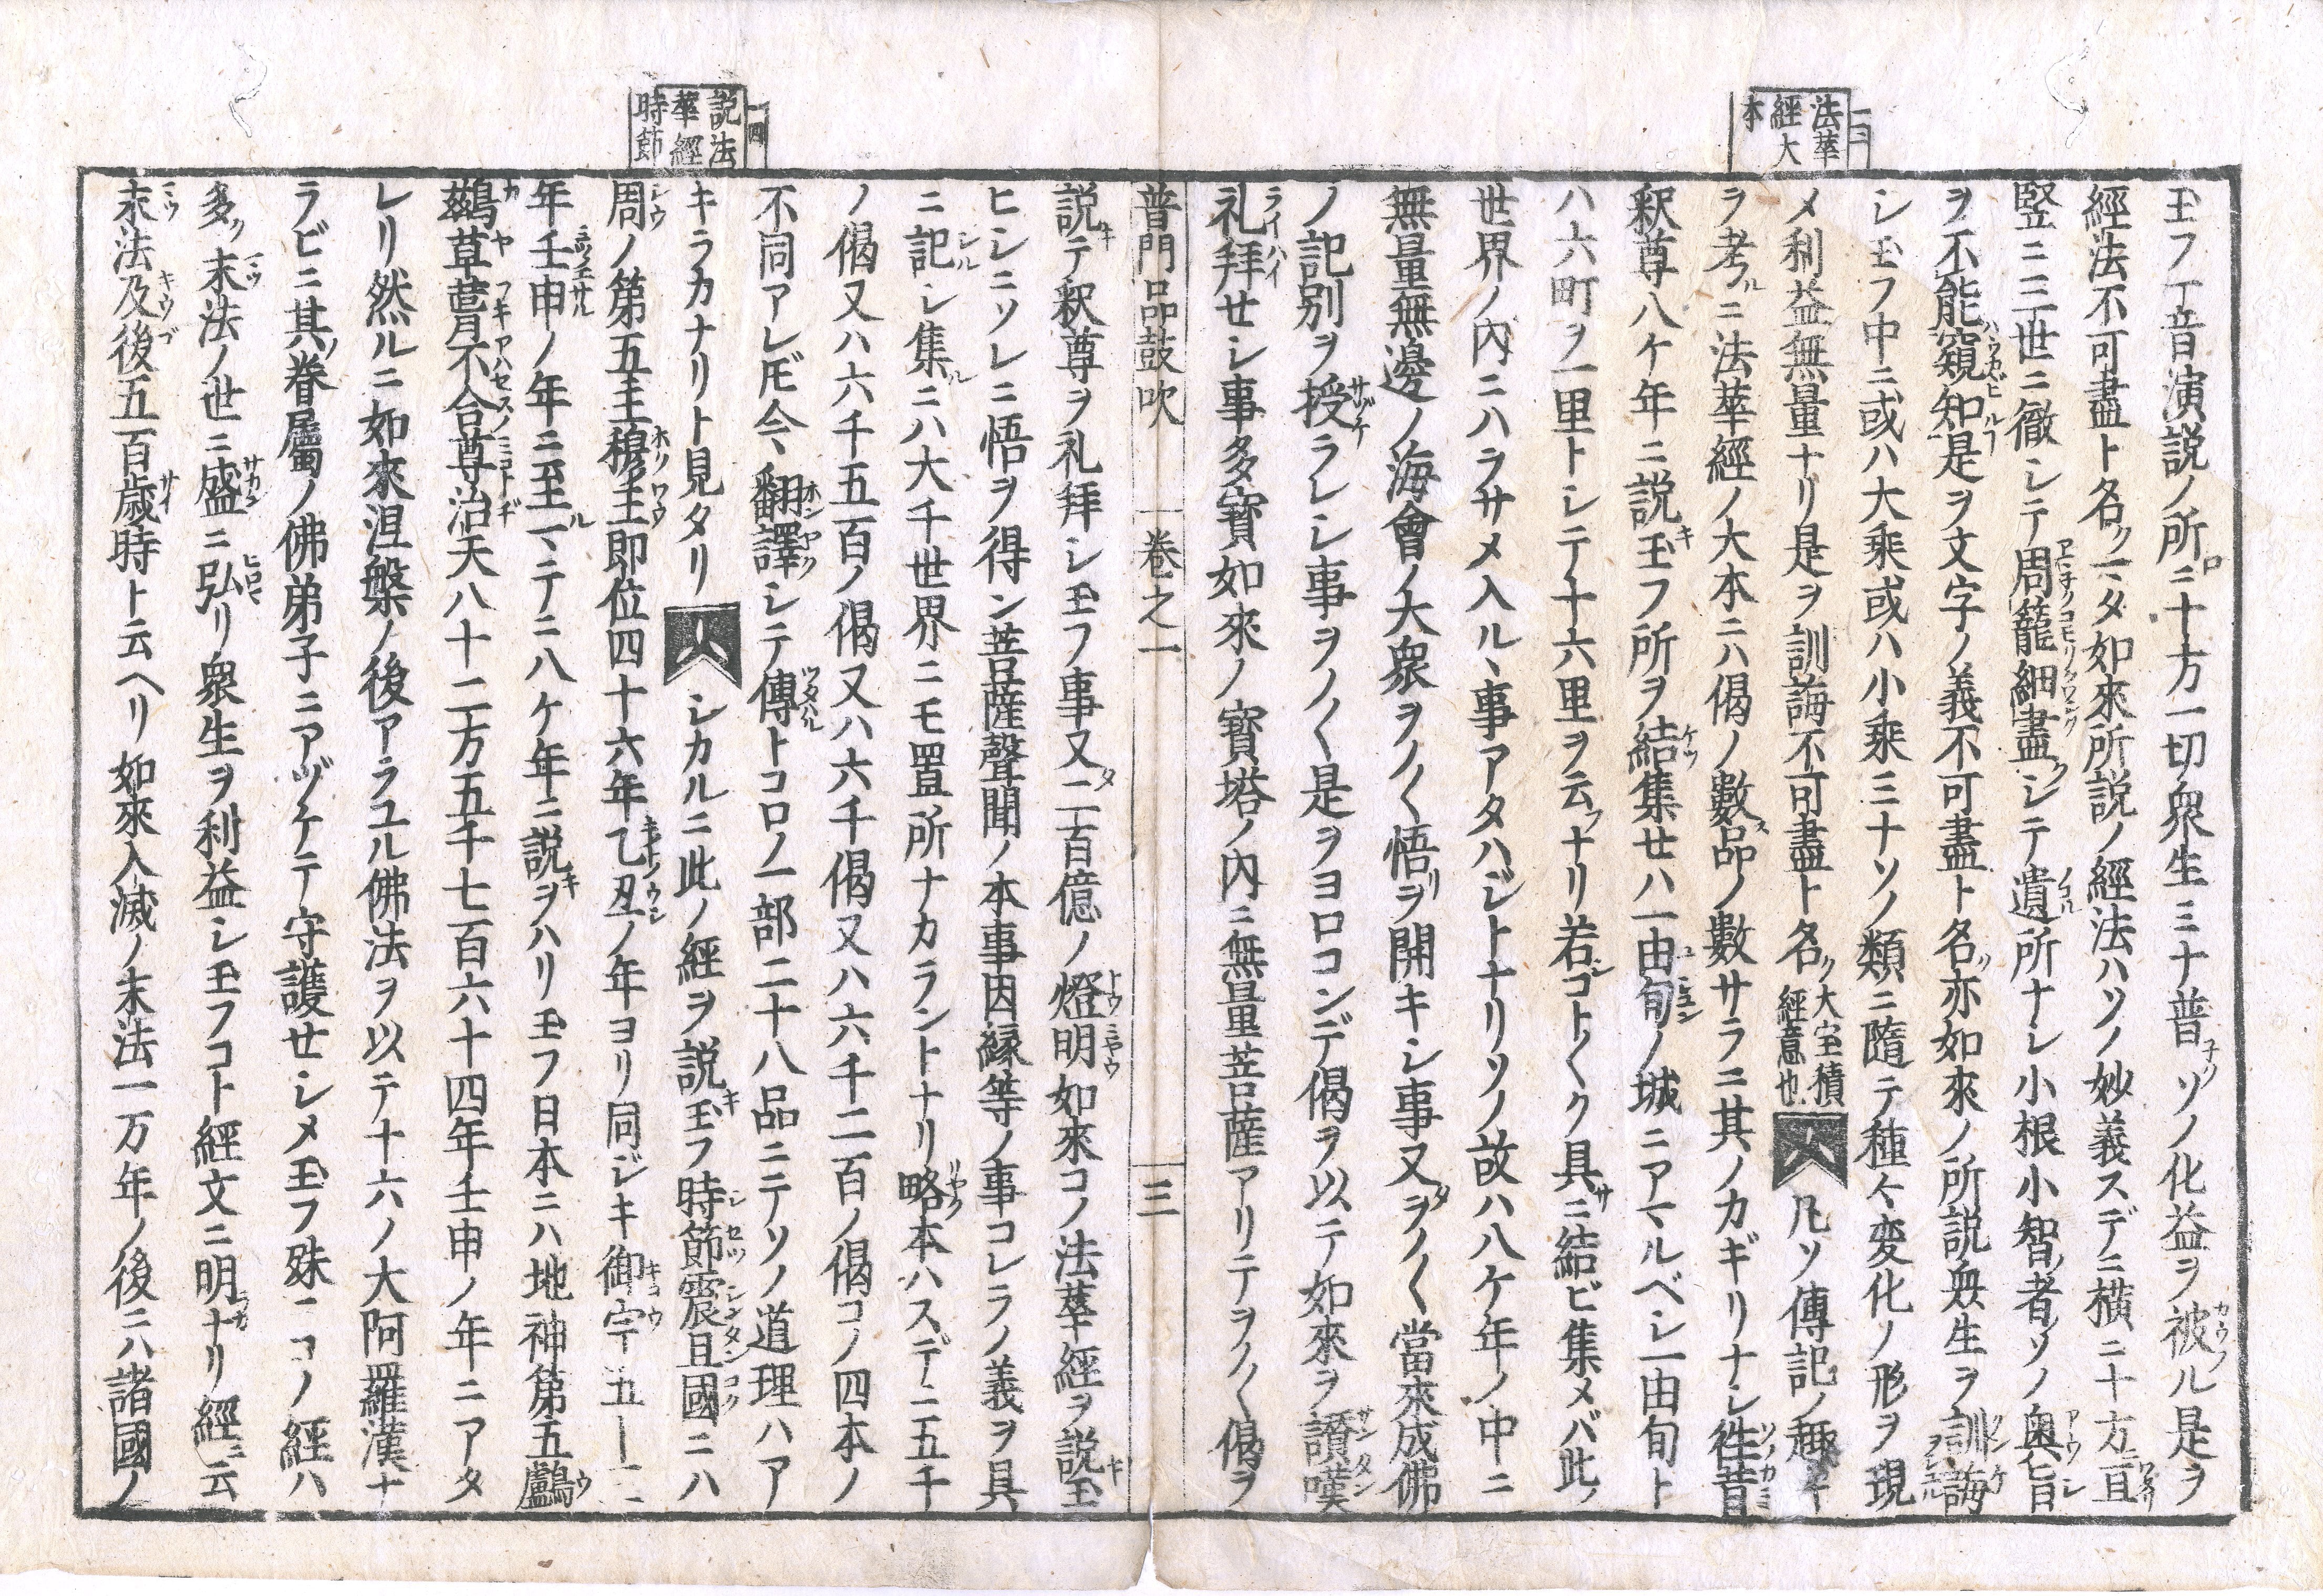 十三
法華
經大
本
玉フ丁音演説ノ所ニ十方一切衆生ミナ普ソノ化益ヲ被ル是ヲ
經法不可盡ト名クマダ如來所説ノ經法ハソノ妙義スデニ横ニ十方ニ亘
竪ニ三世ニ徹シテ周籠細盡シテ遺所ナシ小根小智ノ者ソノ奥旨
ヲ不能窺知是ヲ文字ノ義不可盡ト名ク亦如來ノ所説衆生ヲ訓誨
シ玉フ中ニ或ハ大乘或ハ小乘ミナソノ類ニ隨テ種々変化ノ形ヲ現
メ利益無量ナリ是ヲ訓誨不可盡ト名ク大宝積經意也 凡ソ傳記ノ趣
ヲ考ルニ法華經ノ大本ニハ偈ノ數品ノ數サラニ其ノカギリナシ徃昔
釈尊八ケ年ニ説玉フ所ヲ結集せハ一由旬ノ城ニアマルベシ一由旬ト
ハ六町ヲ一里トシテ十六里ヲ云ナリ若コトゴトク具ニ結ビ集メバ此ノ
世界ノ内ニハヲサメ入ル丶事アタハジトナリソノ故ハ八ケ年ノ中ニ
無量無邊ノ海會ノ大衆ヲノ〱悟ヲ開キシ事又ヲノ〱當來成佛
ノ記別ヲ授ラレシ事ヲノ〱是ヲヨロコンデ偈ヲ以テ如來ヲ讃嘆
礼拜せシ事多寳如來ノ寳塔ノ内ニ無量菩薩アリテヲノ〱偈ヲ
普門品鼓吹 卷之一 三
説テ釈尊ヲ礼拜シ玉フ事又二百億ノ燈明如來コノ法華經ヲ説玉
ヒシニソレニ悟ヲ得ン菩薩聲聞ノ本事因縁等ノ事コレラノ義ヲ具
ニ記シ集ルニハ大千世界ニモ置所ナカラントナリ略本ハスデニ五千
ノ偈又ハ六千五百ノ偈又ハ六千偈又ハ六千二百ノ偈コノ四本ノ
不同アレ𪜈今丶翻譯シテ傳トコロノ一部二十八品ニテソノ道理ハア
キラカナリト見タリ シカルニ此ノ經ヲ説玉フ時節震旦國ニハ
十四
説法
華經
時節
周ノ第五主穆王即位四十六年乙丑ノ年ヨリ同ジキ御宇五十二
年壬申ノ年ニ至マテニ八ケ年ニ説ヲハリ玉フ日本ニハ地神第五鸕
鷀草葺不合尊治天八十二万五千七百六十四年壬申ノ年ニアタ
レリ然ルニ如來涅槃ノ後アラユル佛法ヲ以テ十六ノ大阿羅漢ナ
ラビニ其ノ眷屬ノ佛弟子ニアヅケテ守護せシメ玉フ殊ニコノ經ハ
多ク末法ノ世ニ盛ニ弘リ衆生ヲ利益シ玉フコト經文ニ明ナリ經ニ云
末法及後五百歳時ト云ヘリ如來入滅ノ末法一万年ノ後ニハ諸國ノ